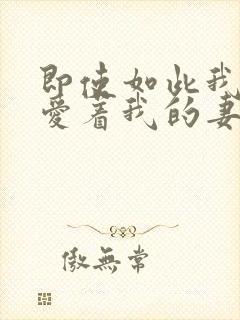 即使如此我
爱着我的妻
傲無常